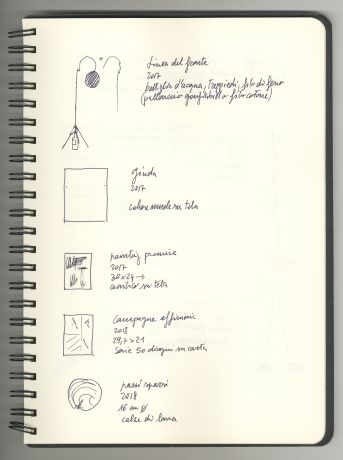 Linea del fronte
2017
bottiglia d'acqua, treppiedi, filo di ferro
(palloncino gonfiabile filo cotone)
Giuda
2017
calze nude su tela
painting promise
2017
30x24 →
su tela
Campagne effimere
2018
29,7 x 21
Serie 50 disegni su carta
passi sparsi
2018
16 cm Ø
calze di lana